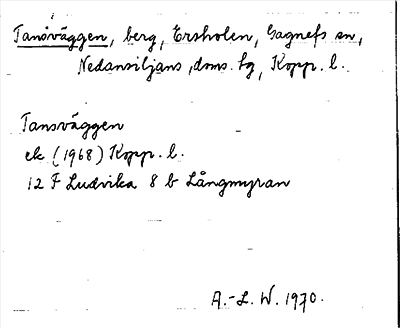 Tansväggen, berg, Ersholen, Gagnefs sn,
Nedansiljans doms. fg, Kopp. l.
Tansväggen
ek (1968) Kopp. l.
12 F Ludvika 8 b Långmyran
A.-L. W. 1970.